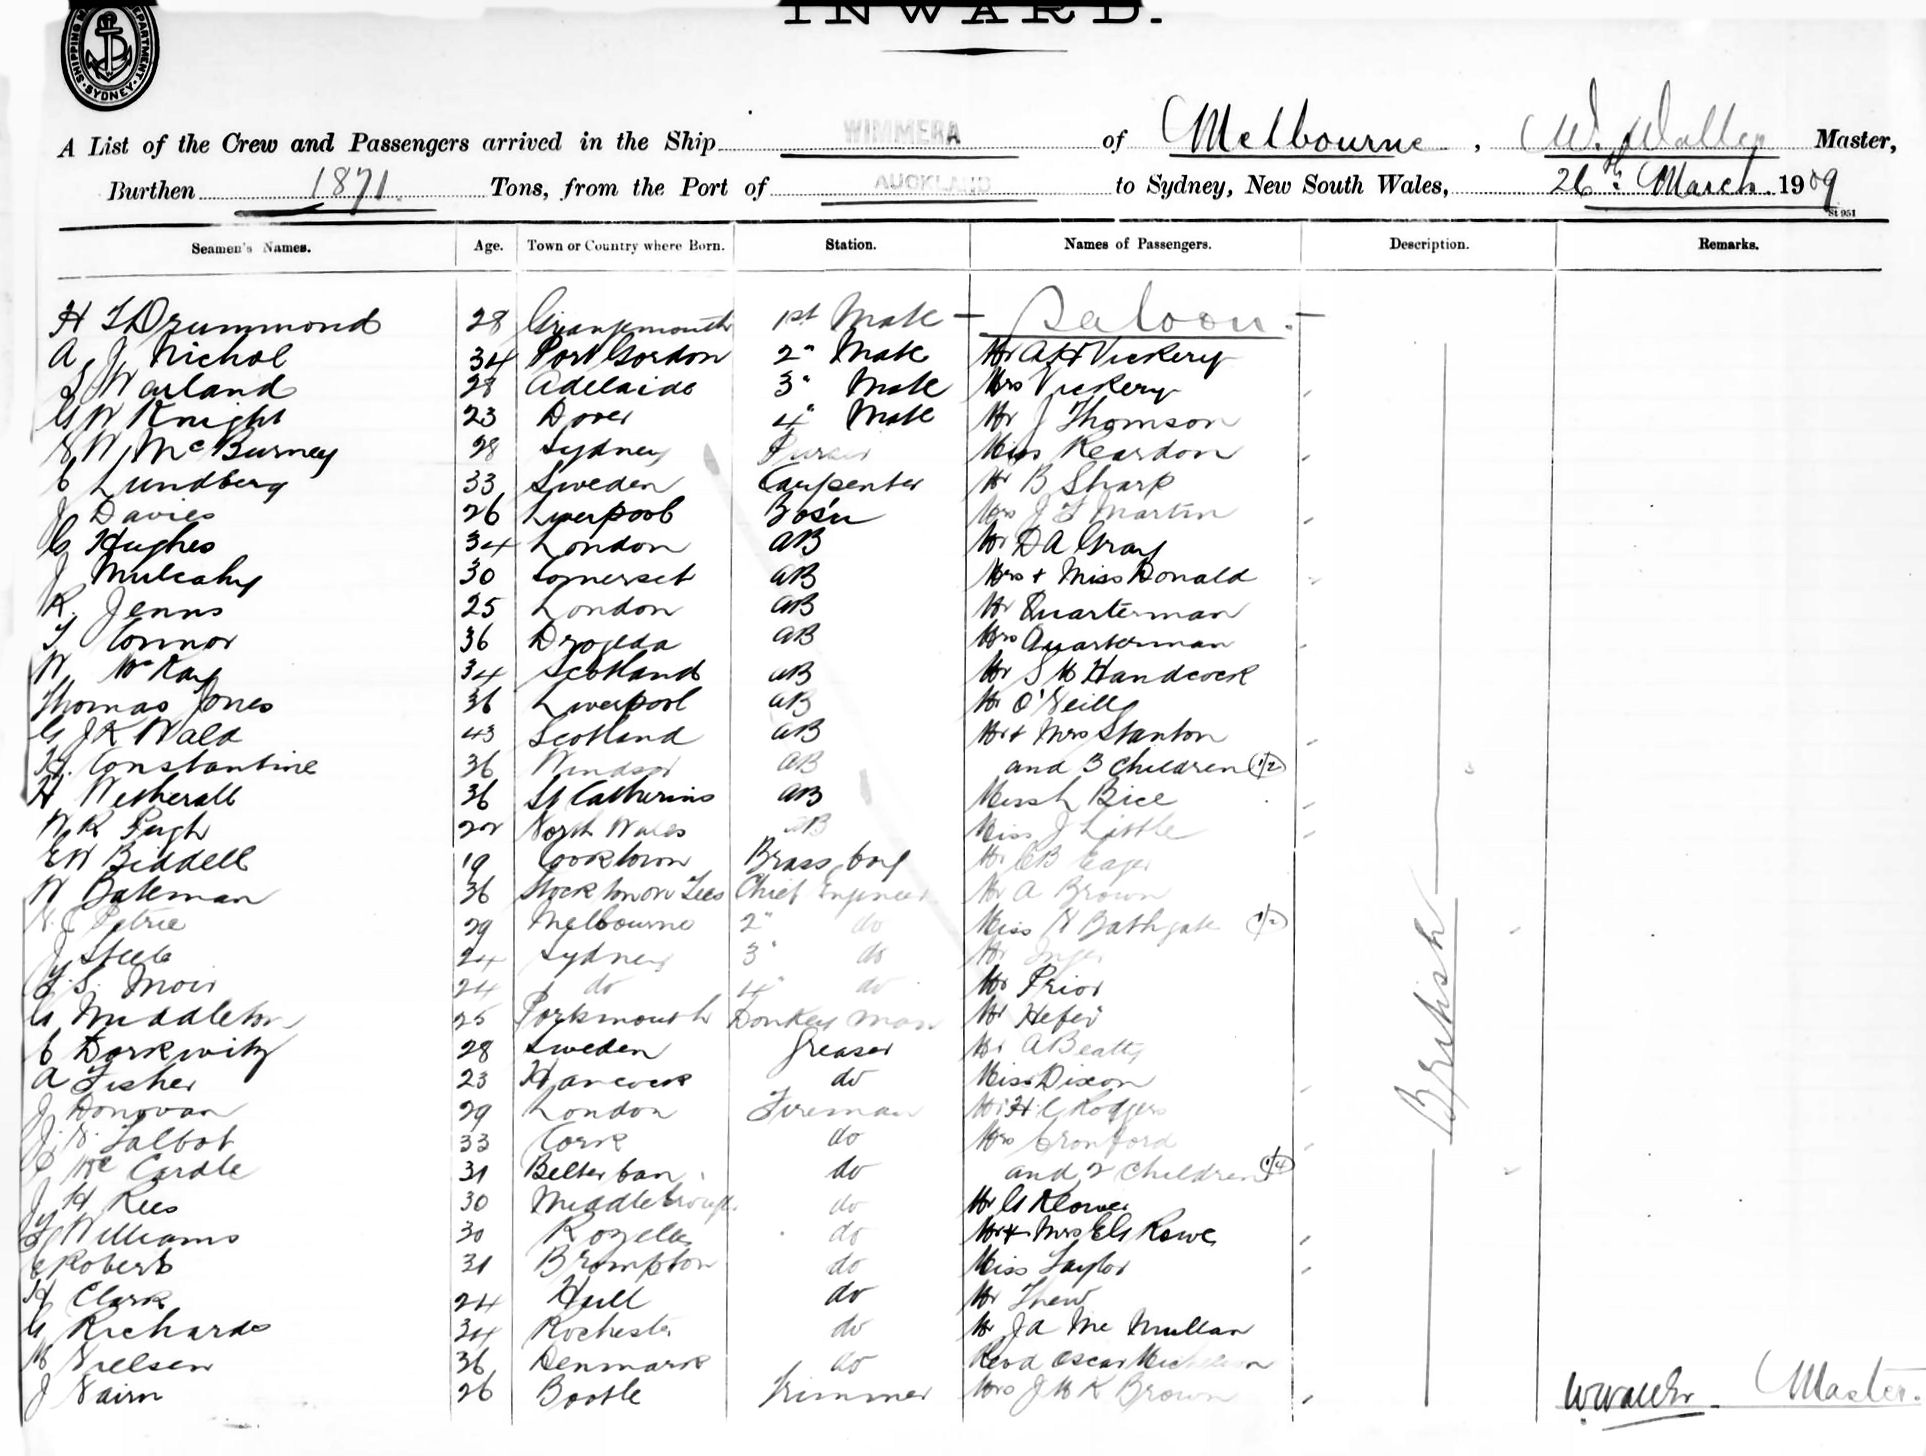 INWARD.
SHIPPING DEPARTMENT SYDNEY
A List of the Crew and Passengers arrived in the Ship WIMMERA of Melbourne, W. Waller Master,
Burthen 1871. Tons, from the Port of AUCKLAND to Sydney, New South Wales, 26th March 1909
St 951
Seamen's Names. Age. Town or Country where Born. Station. Names of Passengers. Description. Remarks.
H Drummond 28 Grangemouth 1st Mate – Saloon. –
A J Nichol 34 Port Gordon 2" Mate Mr A H Vickery
S Warland 28 Adelaide 3" Mate Mrs Vickery
G W Knight 23 Dover 4" Mate Mr J Thomson
W McBurney 28 Sydney Purser Miss Reardon
C Lundberg 33 Sweden Carpenter Mr B Sharp
J Davies 26 Liverpool Bos'n Mrs J F Martin
G Hughes 34 London AB Mr D A Gray
J Mulcahy 30 Somerset AB Mrs + Miss Donald
R. Jenns 25 London AB Mr Quarterman
T Connor 36 Drogeda AB Mrs Quarterman
W McKay 34 Scotland AB Mr S Handcock
Thomas Jones 36 Liverpool AB Mr O'Neill
G J K Wald 43 Scotland AB Mr + Mrs Stanton
H. Constantine 36 Windsor AB and 3 Children (1/2)
H Wetherall 36 St Catherins AB Miss L Bice
W R Pugh 22 North Wales AB Miss J Little
E W Biddell 19 Cooktown Brass boy Mr C B Eager
W Bateman 36 Stockton on Tees Chief Engineer Mr A Brown
Petrie 29 Melbourne 2" do Miss N Bathgate (1/2)
J Steele 24 Sydney 3" do Mr
T. S. Moir 24 do 4" do Mr Prior
G Middleton 25 Portsmouth Donkey man Mr Hefer
C Dorkwitz 28 Sweden Greaser Mr A Beatty
A Fisher 23 Hancock do Miss Dixon
J Donovan 29 London Fireman Mr H C Rodgers
J. Talbot 33 Cork do Mrs Cronford
McCardle 31 Belterban do and 2 Children (1/4)
J H Rees 30 Middlebrough do Mr G Klower
T Williams 30 Rozelle do Mr + Mrs E G Rowe
C Roberts 31 Brompton do Miss Taylor
H Clark 24 Hull do Mr Thew
G Richards 34 Rochester do Mr J A McMullan
Nielsen 36 Denmark do Revd Oscar Michelson
J Nairn 26 Bootle Trimmer Mrs J M K Brown
British
W Waller. Master.